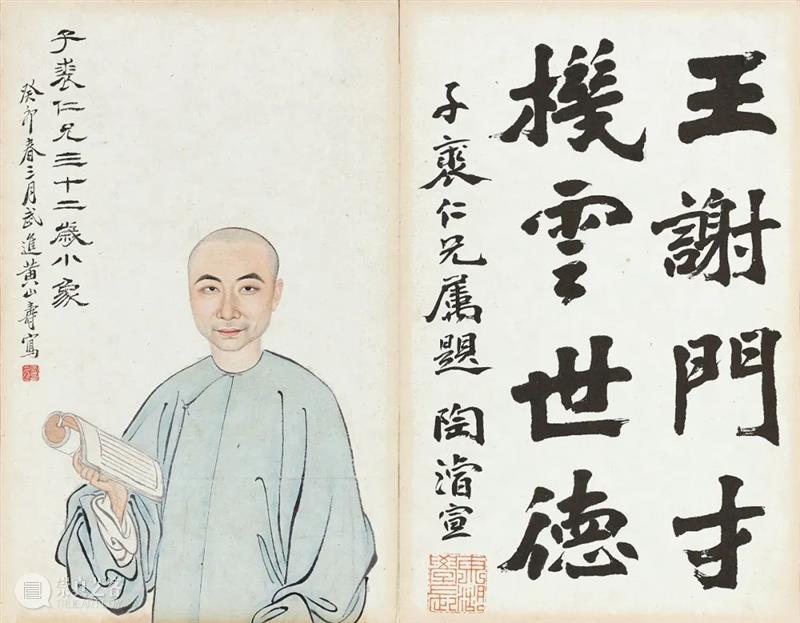 王謝門才
機雲世德
子裘仁兄屬題 陶濬宣
子裘仁兄三十二歲小象
癸卯春三月武進黃山壽寫
崇真艺客